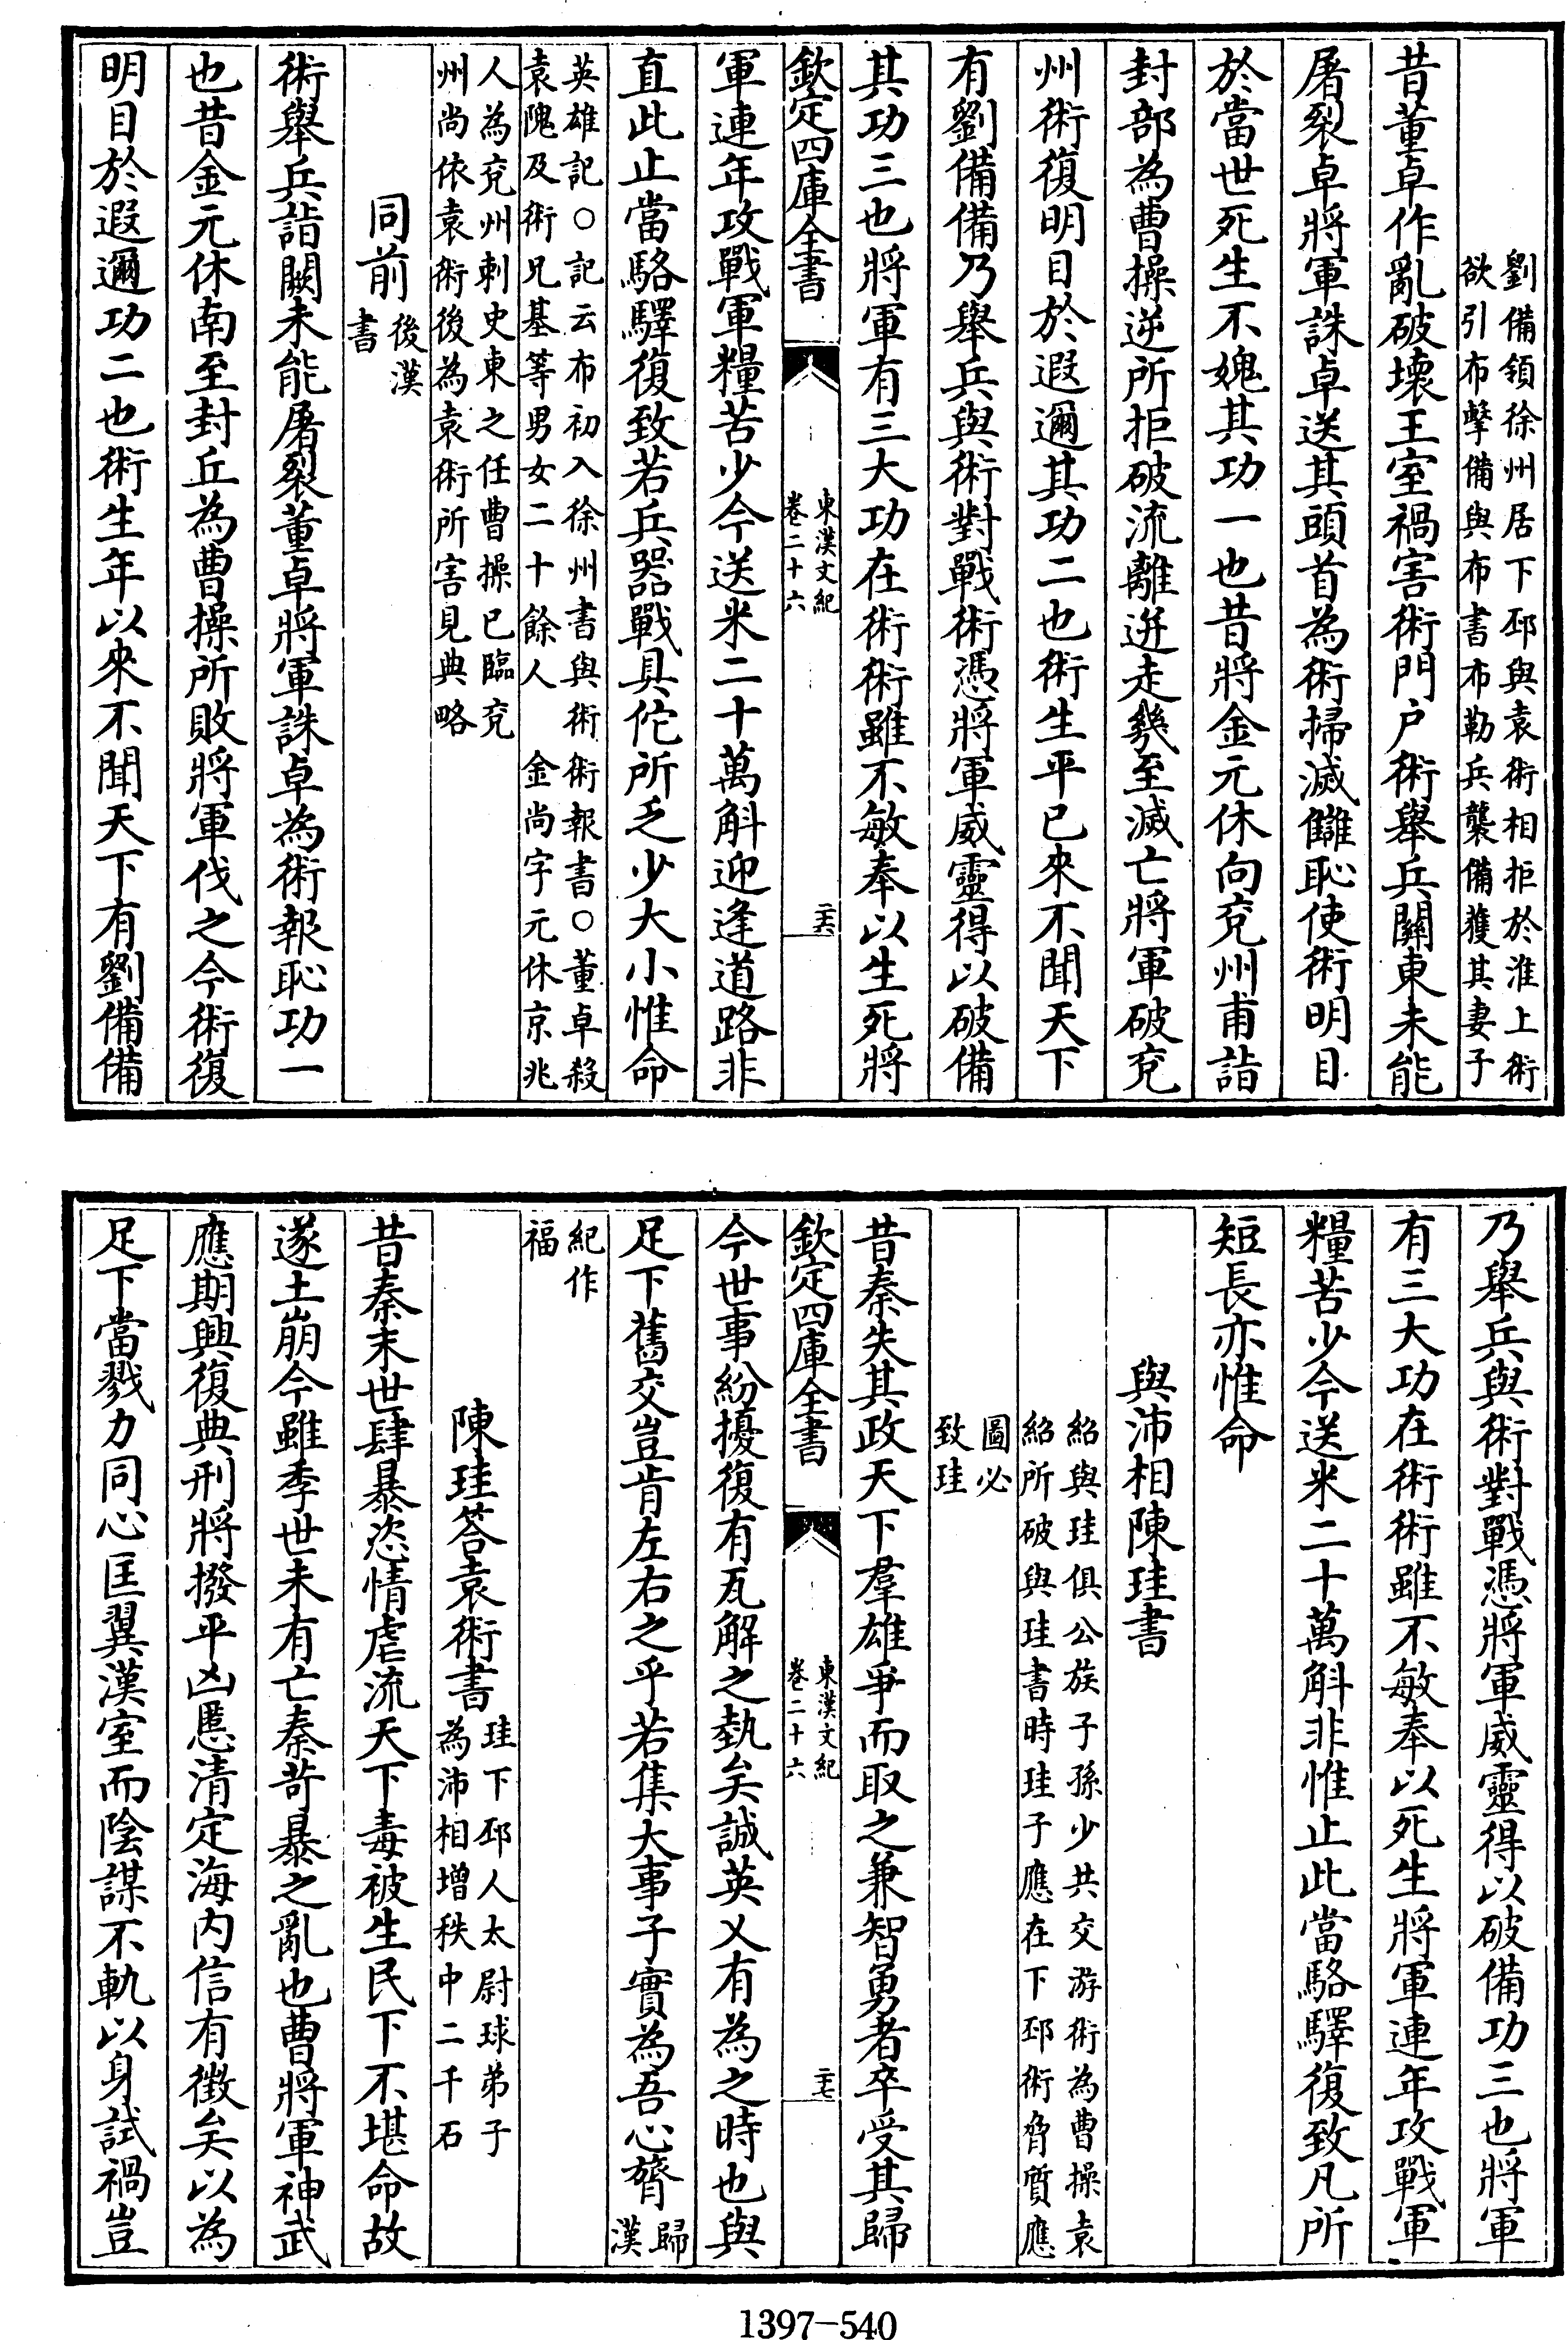 劉備領徐州居下邳與袁術相拒於淮上術
欲引布擊備與布書布勒兵襲備獲其妻子
昔董卓作亂破壞王室禍害術門戶術舉兵關東未能
屠裂卓將軍誅卓送其頭首為術掃滅讎恥使術明目
於當世死生不媿其功一也昔將金元休向兗州甫詣
封部為曹操逆所拒破流離迸走幾至滅亡將軍破兗
州術復明目於遐邇其功二也術生平已來不聞天下
有劉備備乃舉兵與術對戰術憑將軍威靈得以破備
其功三也將軍有三大功在術術雖不敏奉以生死將
欽定四庫全書
東漢文紀
卷二十六
二十六
軍連年攻戰軍糧苦少今送米二十萬斛迎逢道路非
直此止當駱驛復致若兵器戰具佗所乏少大小惟命
英雄記○記云布初入徐州書與術術報書○董卓殺
袁隗及術兄基等男女二十餘人 金尚字元休京兆
人為兗州刺史東之任曹操已臨兗
州尚依袁術後為袁術所害見典略
同前
後漢
書
術舉兵詣闕未能屠裂董卓將軍誅卓為術報恥功一
也昔金元休南至封丘為曹操所敗將軍伐之令術復
明目於遐邇功二也術生年以來不聞天下有劉備備
乃舉兵與術對戰憑將軍威靈得以破備功三也將軍
有三大功在術術雖不敏奉以死生將軍連年攻戰軍
糧苦少今送米二十萬斛非惟止此當駱驛復致凡所
短長亦惟命
與沛相陳珪書
紹與珪俱公族子孫少共交游術為曹操袁
紹所破與珪書時珪子應在下邳術脅質應
圖必
致珪
昔秦失其政天下羣雄爭而取之兼智勇者卒受其歸
欽定四庫全書
東漢文紀
卷二十六
二十七
今世事紛擾復有瓦解之埶矣誠英乂有為之時也與
足下舊交豈肯左右之乎若集大事子實為吾心膂
歸
漢
紀作
福
陳珪答袁術書
珪下邳人太尉球弟子
為沛相增秩中二千石
昔秦末世肆暴恣情虐流天下毒被生民下不堪命故
遂土崩今雖季世未有亡秦苛暴之亂也曹將軍神武
應期興復典刑將撥平凶慝清定海內信有徵矣以為
足下當戮力同心匡翼漢室而陰謀不軌以身試禍豈
1397-540